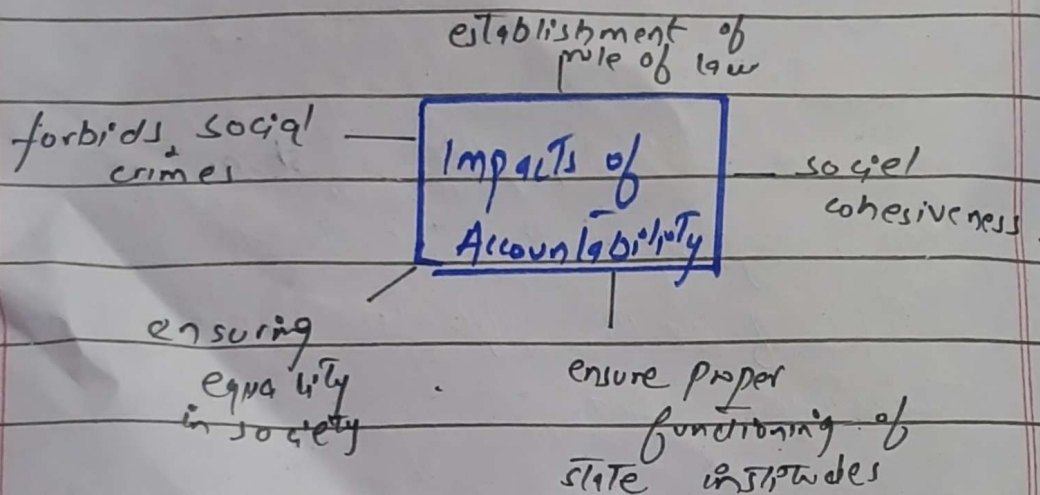 establishment of
rule of law
forbids social
crimes
Impacts of
Accountability
social
cohesiveness
ensuring
equality
in society
ensure proper
functioning of
state institudes